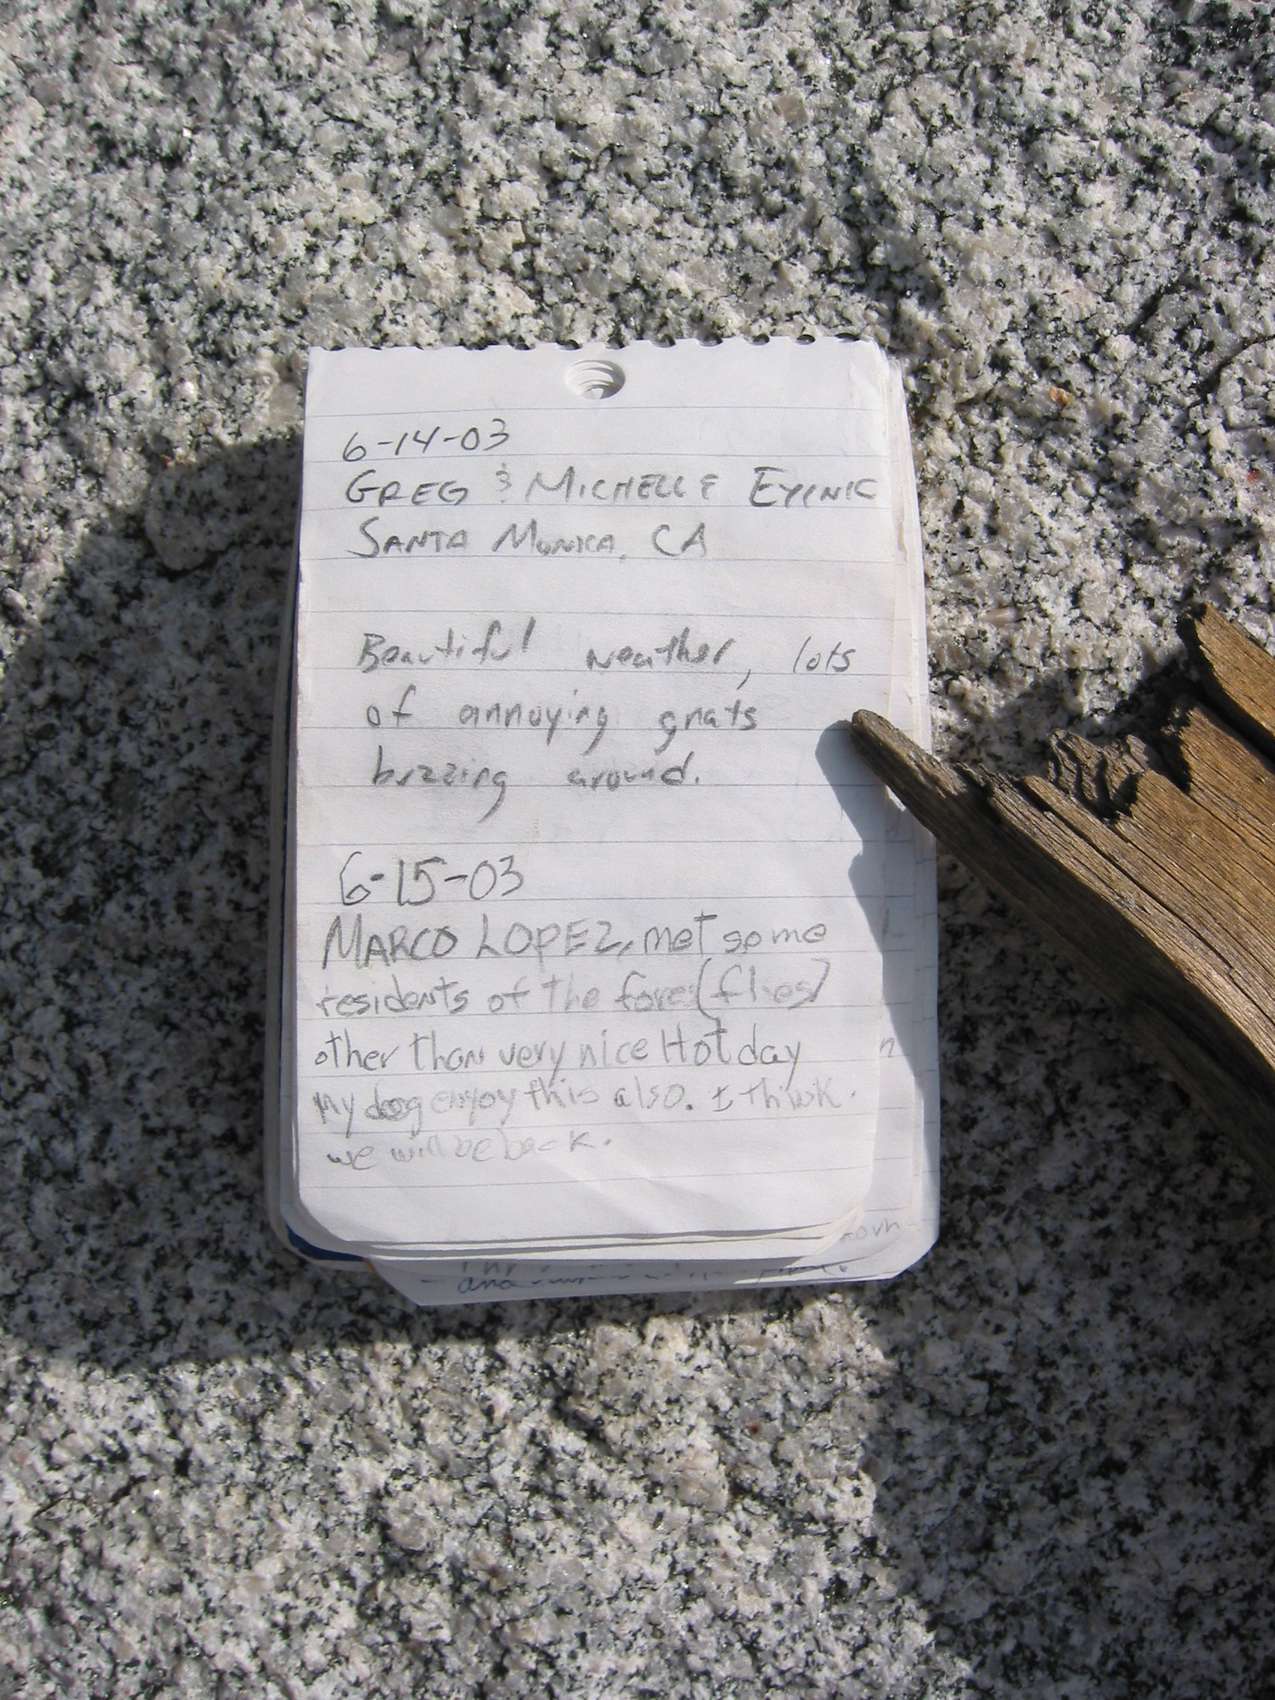 6-14-03
GREG & MICHELLE EYINK
SANTA MONICA, CA
Beautiful weather, lots
of annoying gnats
buzzing around.
6-15-03
MARCO LOPEZ, met some
residents of the fores (flies)
other than very nice Hot day
My dog enjoy this also. I think.
we will be back.